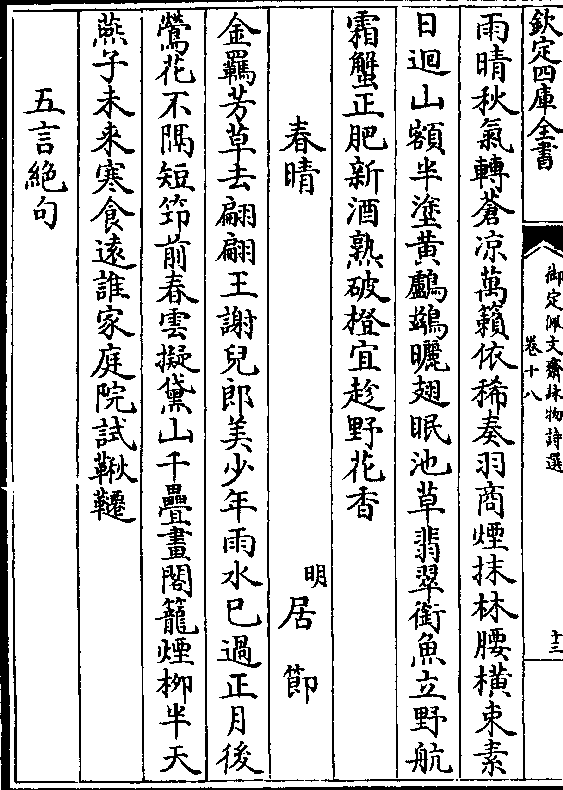 欽定四庫全書
御定佩文齋詠物詩選
卷十八
十三
雨晴秋氣轉蒼凉萬籟依稀奏羽商煙抹林腰橫束素
日迴山額半塗黃鸕鷀曬翅眠池草翡翠銜魚立野航
霜蟹正肥新酒熟破橙宜趁野花香
春晴
明居節
金羈芳草去翩翩王謝兒郎美少年雨水已過正月後
鶯花不隔短筇前春雲擬黛山千疊畫閣籠煙柳半天
燕子未来寒食遠誰家庭院試鞦韆
五言絕句